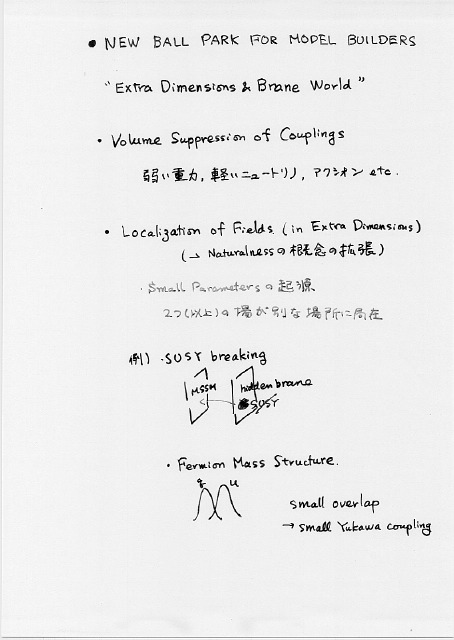 • NEW BALL PARK FOR MODEL BUILDERS
"Extra Dimensions & Brane World"
• Volume Suppression of Couplings
弱い重力, 軽いニュートリノ, アクシオン etc.
• Localization of Fields (in Extra Dimensions)
(→ Naturalnessの概念の拡張)
・Small Parametersの起源
2つ(以上)の場が別な場所に局在
例) ・SUSY breaking
MSSM hidden brane
SUSY
・Fermion Mass Structure.
q u
small overlap
→ small Yukawa coupling